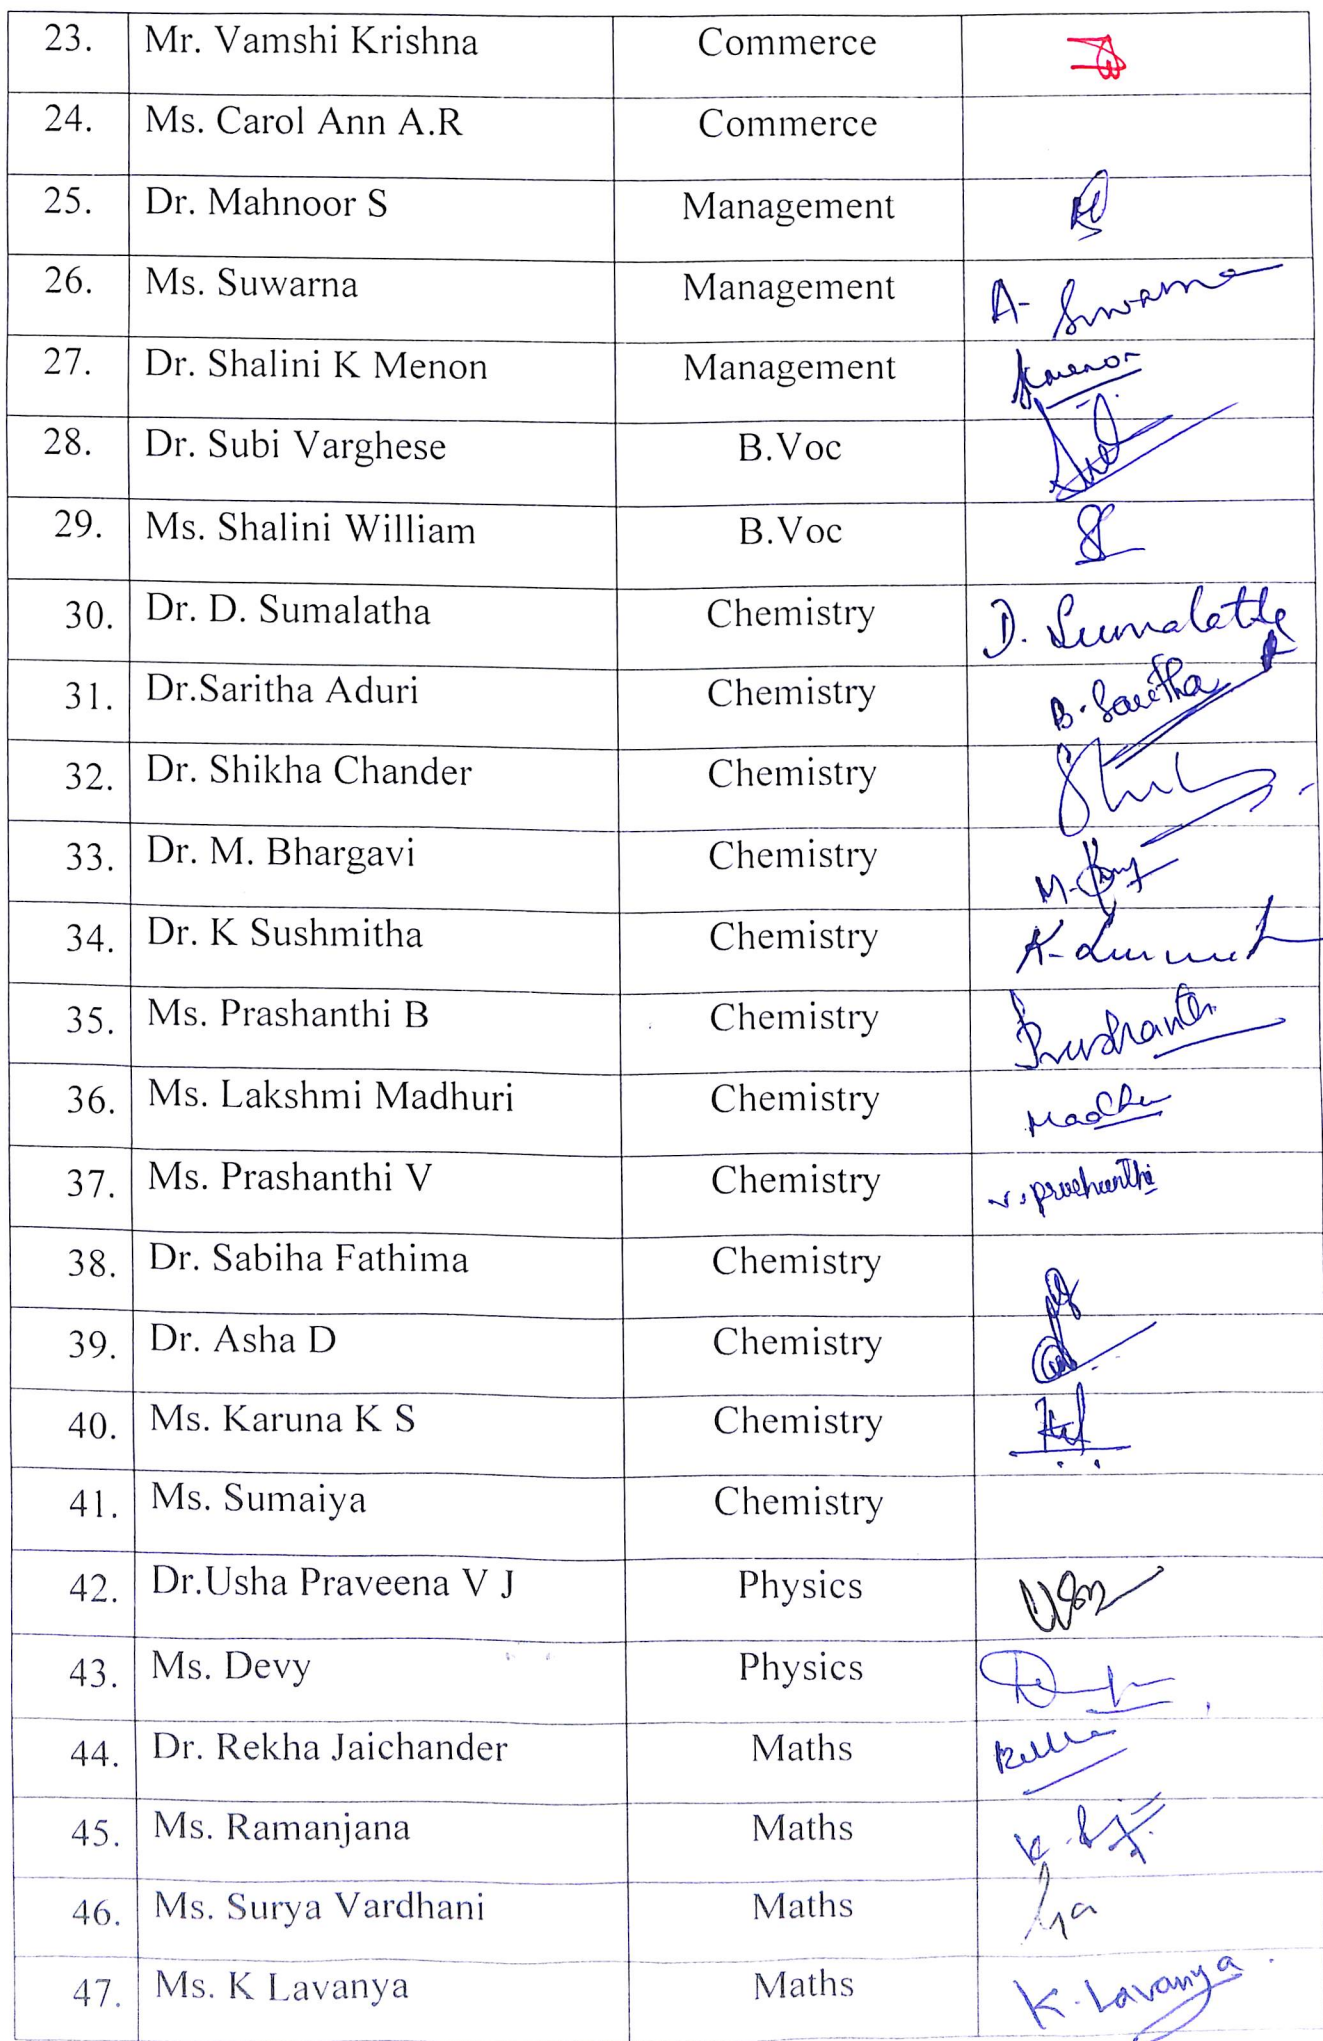 23. Mr. Vamshi Krishna Commerce
24. Ms. Carol Ann A.R Commerce
25. Dr. Mahnoor S Management
26. Ms. Suwarna Management A- Suwarna
27. Dr. Shalini K Menon Management Kmenon
28. Dr. Subi Varghese B.Voc
29. Ms. Shalini William B.Voc
30. Dr. D. Sumalatha Chemistry D. Sumalatha
31. Dr.Saritha Aduri Chemistry B. Saritha
32. Dr. Shikha Chander Chemistry
33. Dr. M. Bhargavi Chemistry
34. Dr. K Sushmitha Chemistry
35. Ms. Prashanthi B Chemistry Prashanthi
36. Ms. Lakshmi Madhuri Chemistry Madhu
37. Ms. Prashanthi V Chemistry v. prashanthi
38. Dr. Sabiha Fathima Chemistry
39. Dr. Asha D Chemistry
40. Ms. Karuna K S Chemistry
41. Ms. Sumaiya Chemistry
42. Dr.Usha Praveena V J Physics
43. Ms. Devy Physics
44. Dr. Rekha Jaichander Maths Rekha
45. Ms. Ramanjana Maths
46. Ms. Surya Vardhani Maths
47. Ms. K Lavanya Maths K. Lavanya